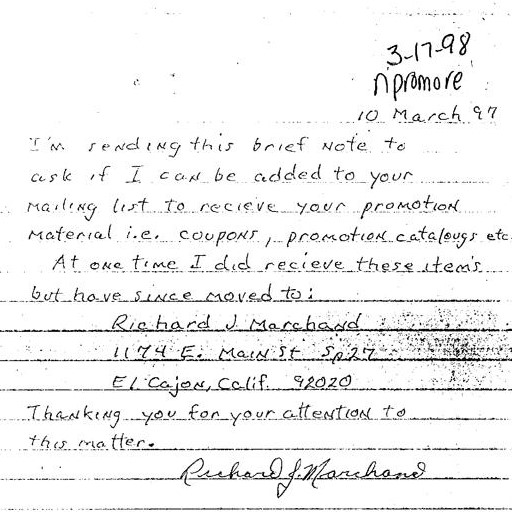 3-17-98
npromore
10 March 97
I'm sending this brief note to
ask if I can be added to your
mailing list to recieve your promotion
material i.e. coupons, promotion catalougs etc
At one time I did recieve these item's
but have since moved to:
Richard J Marchand
1174 E. Main St Sp27
El Cajon, Calif. 92020
Thanking you for your attention to
this matter.
Richard J. Marchand